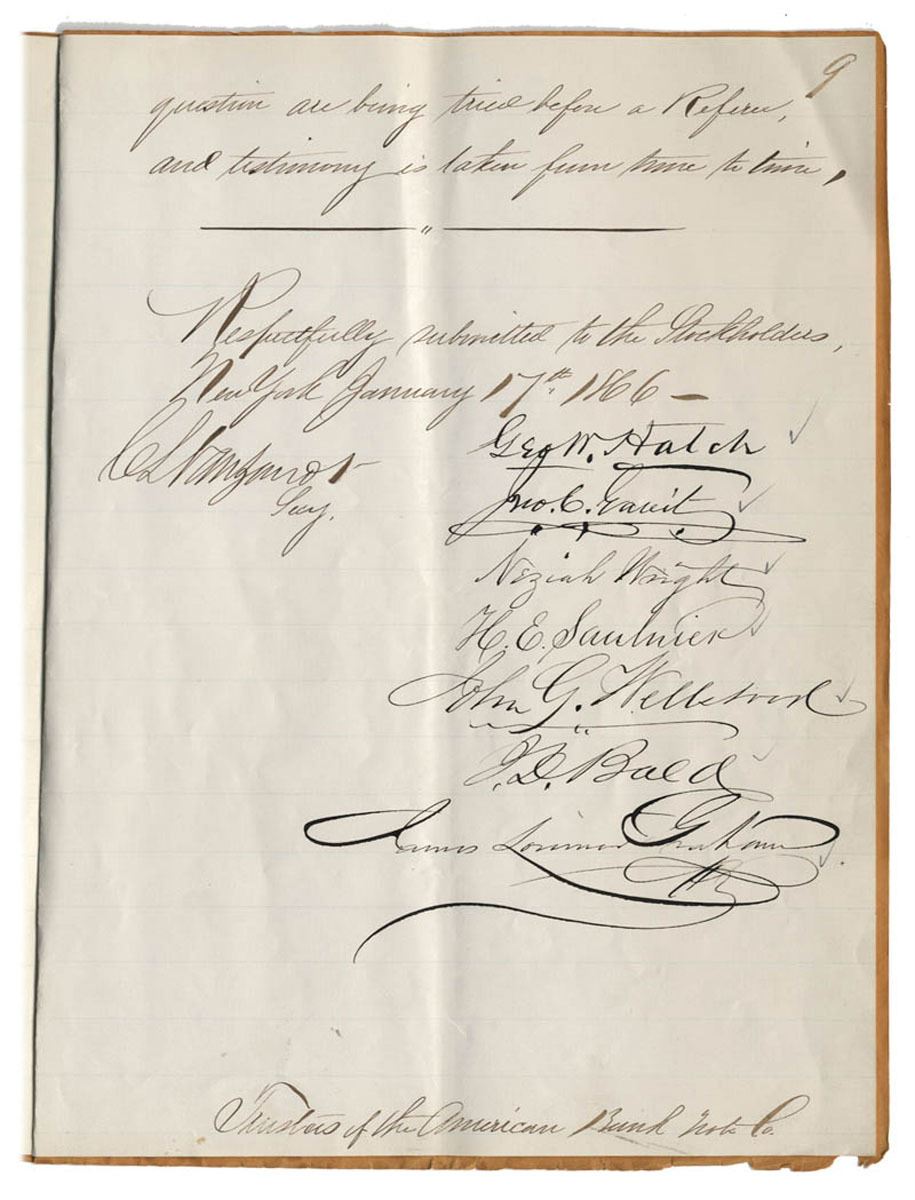 9
question are being tried before a Referee,
and testimony is taken from time to time,
"
Respectfully submitted to the Stockholders,
New York January 17th 1866 —
Geo W. Hatch
C L Van Zandt
Jno. C. Gavit
Secy.
Neziah Wright
H. E. Saulnier
John G. Wellstood
J. D. Bald
James Lorimer Graham
Jr
Trustees of the American Bank Note Co.